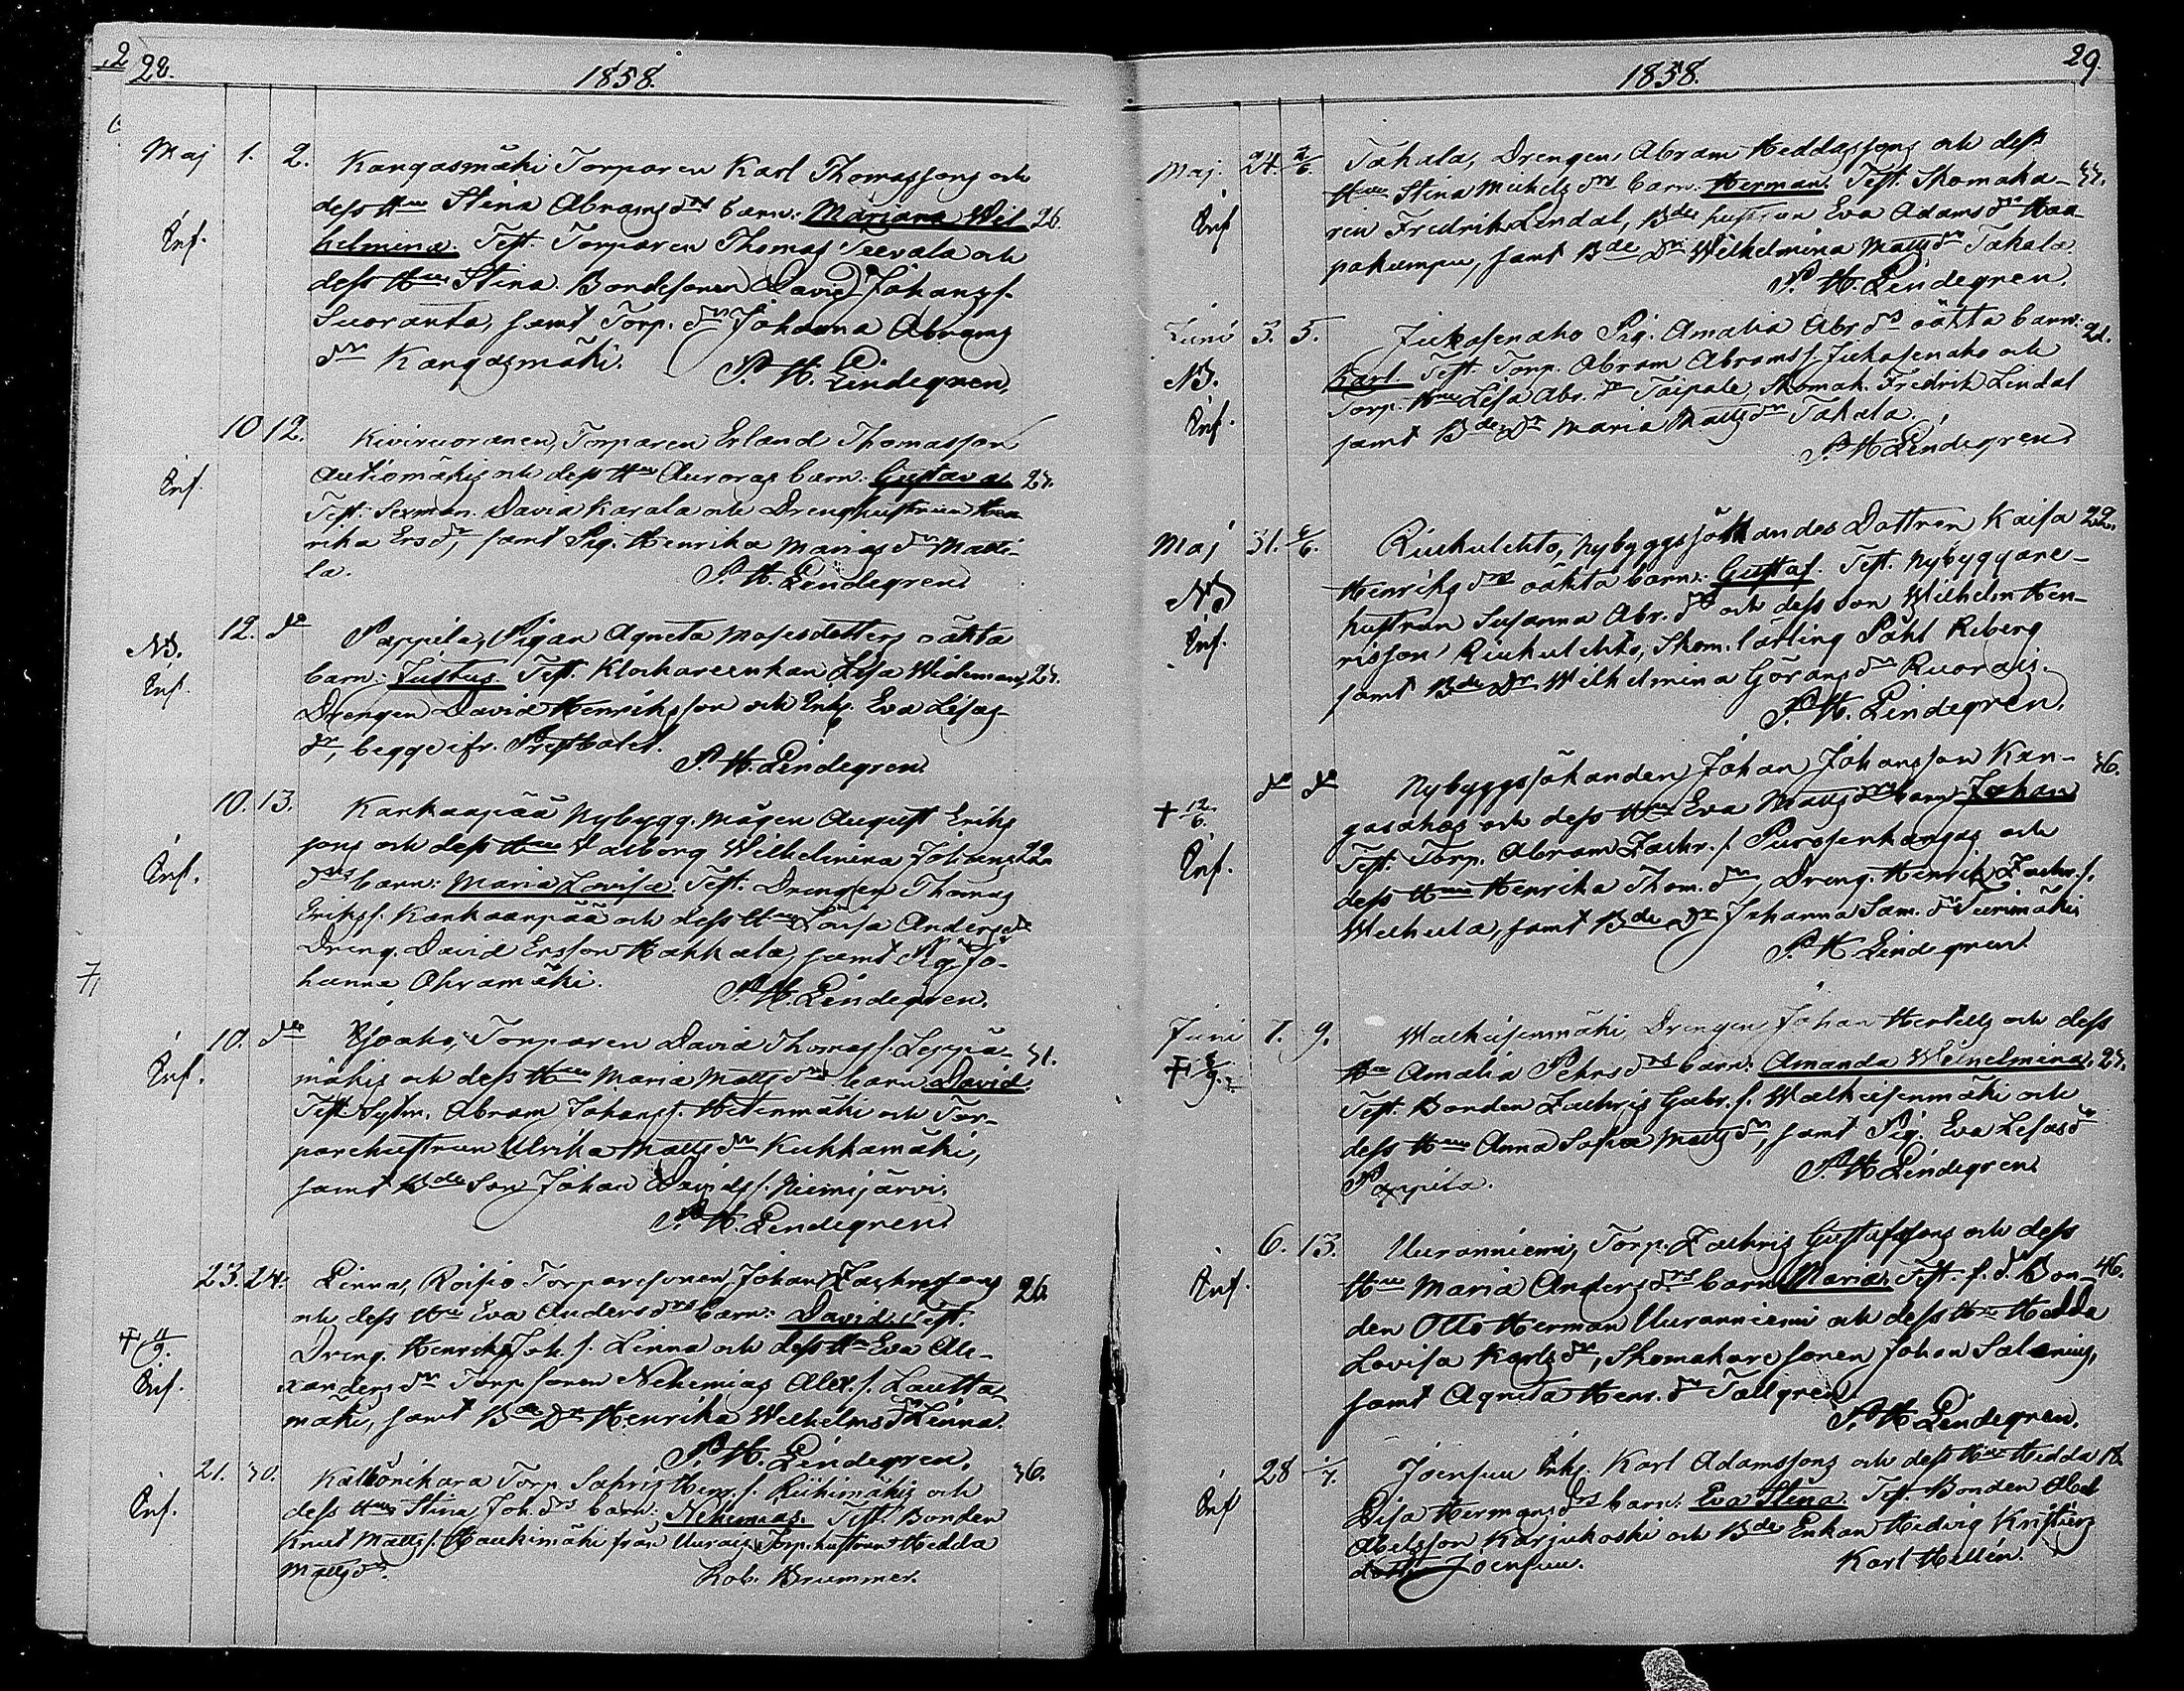 28.
1858.
Maj 1. 2. Kangasmäki Torparen Karl Thomassons och
dess Hu Stina Abramsdrs barn: Mariana Wil- 26.
Inf. helmina. Test. Torparen Thomas Teevala och
dess Hu Stina. Bondesonen David Johanss.
Suoranta, samt Torp. dr Johanna Abrams
dr Kangasmäki. P. H. Lindegren.
10 12. Kiviruoranen, Torparen Erland Thomasson
Inf. Autiomäkis och dess Hu Auroras barn: Gustava 27.
Test: Sexman. David Karala och Drenghustrun
rika Ersdr, samt Pig. Henrika Mariasdr Matti-
la. P. H. Lindegren.
12. do Pappila, Pigan Agneta Mosesdotters oäkta
NB. Inf. barn: Justus. Test. Klockareenkan Lisa Widemans 27.
Drengen David Henriksson och Inhs. Eva Lisas
dr, begge ifr. Prestbolet.
P. H. Lindegren.
10. 13. Karhaapää Nybygg. mågen August Eriks
sons och dess Hu Valborg Wilhelmina Johans 22.
Inf. drs barn: Maria Lovisa. Test. Drengen Thomas
Erikss. Kankaanpää och dess Hu Lovisa Andersdr
Dreng. David Ersson Hakkala, samt Pig. Jo-
hanna Ohramäki. P. H. Lindegren.
10. do Torparen David Thomass. Leppä- 31.
Inf. mäkis och dess Hu Maria Mattsdrs barn David.
Test. Sytn. Abram Johanss. Hietinmäki och Tor-
parehustrun Ulrika Mattsdr Kuhkamäki,
samt Bde Son Johan Davidss. Niemijärvi.
P. H. Lindegren.
23. 24. Linna, Roisio Torparesonen Johan Zachrissons 26.
och dess Hu Eva Andersdrs barn: David. Test.
+ 11/9. Dreng. Henrik Joh. s. Linna och dess Hu Eva Ale-
Inf. xandersdr Torp. sonen Nehemias Alex. s. Lautta-
mäki, samt Bde Dr Henrika Wilhelmsdr Linna.
P. H. Lindegren.
21. 30. Torp. Sakris Henr. s. Riihimäkis och 36.
Inf. dess Hu Stina Joh. drs barn: Nehemias. Test. Bonden
Knut Matts s. Haukimäki från Uurais Torp. hustrun Hedda
Mattsdr. Rob. Brummer.
29.
1858.
Maj. 24. 2/6. Takala, Drengen Abram Heddassons och dess
Hu Stina Michelsdrs barn: Herman. Test. Skomaka- 37.
Inf. ren Fredrik Lindal, Bde hustrun Eva Adamsdr Haa-
pakumpu, samt Bde Dr Wilhelmina Mattsdr Takala.
P. H. Lindegren.
Juni 3. 5. Jukosenaho Pig. Amalia Abr. drs oäkta barn: 21.
NB. Karl. Test. Torp. Abram Abramss. Jukosenaho och
Inf. Torp. Hu Lisa Abr. dr Taipale, Skomak. Fredrik Lindal
samt Bde Dr Maria Mattsdr Takala.
P. H. Lindegren.
Maj 31. 6/6. Riukulehto, Nybyggssökandes Dottren Kaisa 22.
NB Henriksdrs oäkta barn: Gustaf. Test. Nybyggare-
Inf. hustrun Susanna Abr. dr och dess son Wilhelm Hen-
risson Riukulehto, Skom. lärling Påhl Riberg
samt Bde Dr Wilhelmina Göransdr Ruorais.
P. H. Lindegren.
do do Nybyggssökanden Johan Johansson Kan- 36.
+ 12/6. gasahos och dess Hu Eva Mattsdrs barn Johan
Inf. Test. Torp. Abram Zachr. s. Purosenkangas och
dess Hu Henrika Thom. dr, Dreng. Henrik Zachr. s.
samt Bde Dr Johanna Sam. dr Tuurimäki
P. H. Lindegren.
Juni 7. 9. Walkeisenmäki Drengen Johan Hertells och dess
Hu Amalia Pehrsdrs barn: Amanda Wilhelmina. 27.
Test. Bonden Zachris Gabr. s. Walkeisenmäki och
dess Hu Anna Sofia Mattsdr, samt Pig. Eva Lisasdr
Pappila. P. H. Lindegren.
6. 13. Uuranniemi, Torp. Zachris Gustafssons och dess
Inf. Hu Maria Andersdrs barn Maria. Test. f. d. Bon- 46.
den Otto Herman Uuranniemi och dess Hu Hedda
Lovisa Karlsdr, Skomakaresonen Johan Salenius,
samt Agneta Henr. dr Tallgren.
P. H. Lindegren.
28 1/7. Joensuu Inhs. Karl Adamssons och dess Hu Hedda 18.
Inf Lisa Hermansdrs barn: Eva Stina. Test. Bonden Abel
Abelsson Karjukoski och Bde Enkan Hedvig Kristers
dotter Joensuu. Karl Hellén.